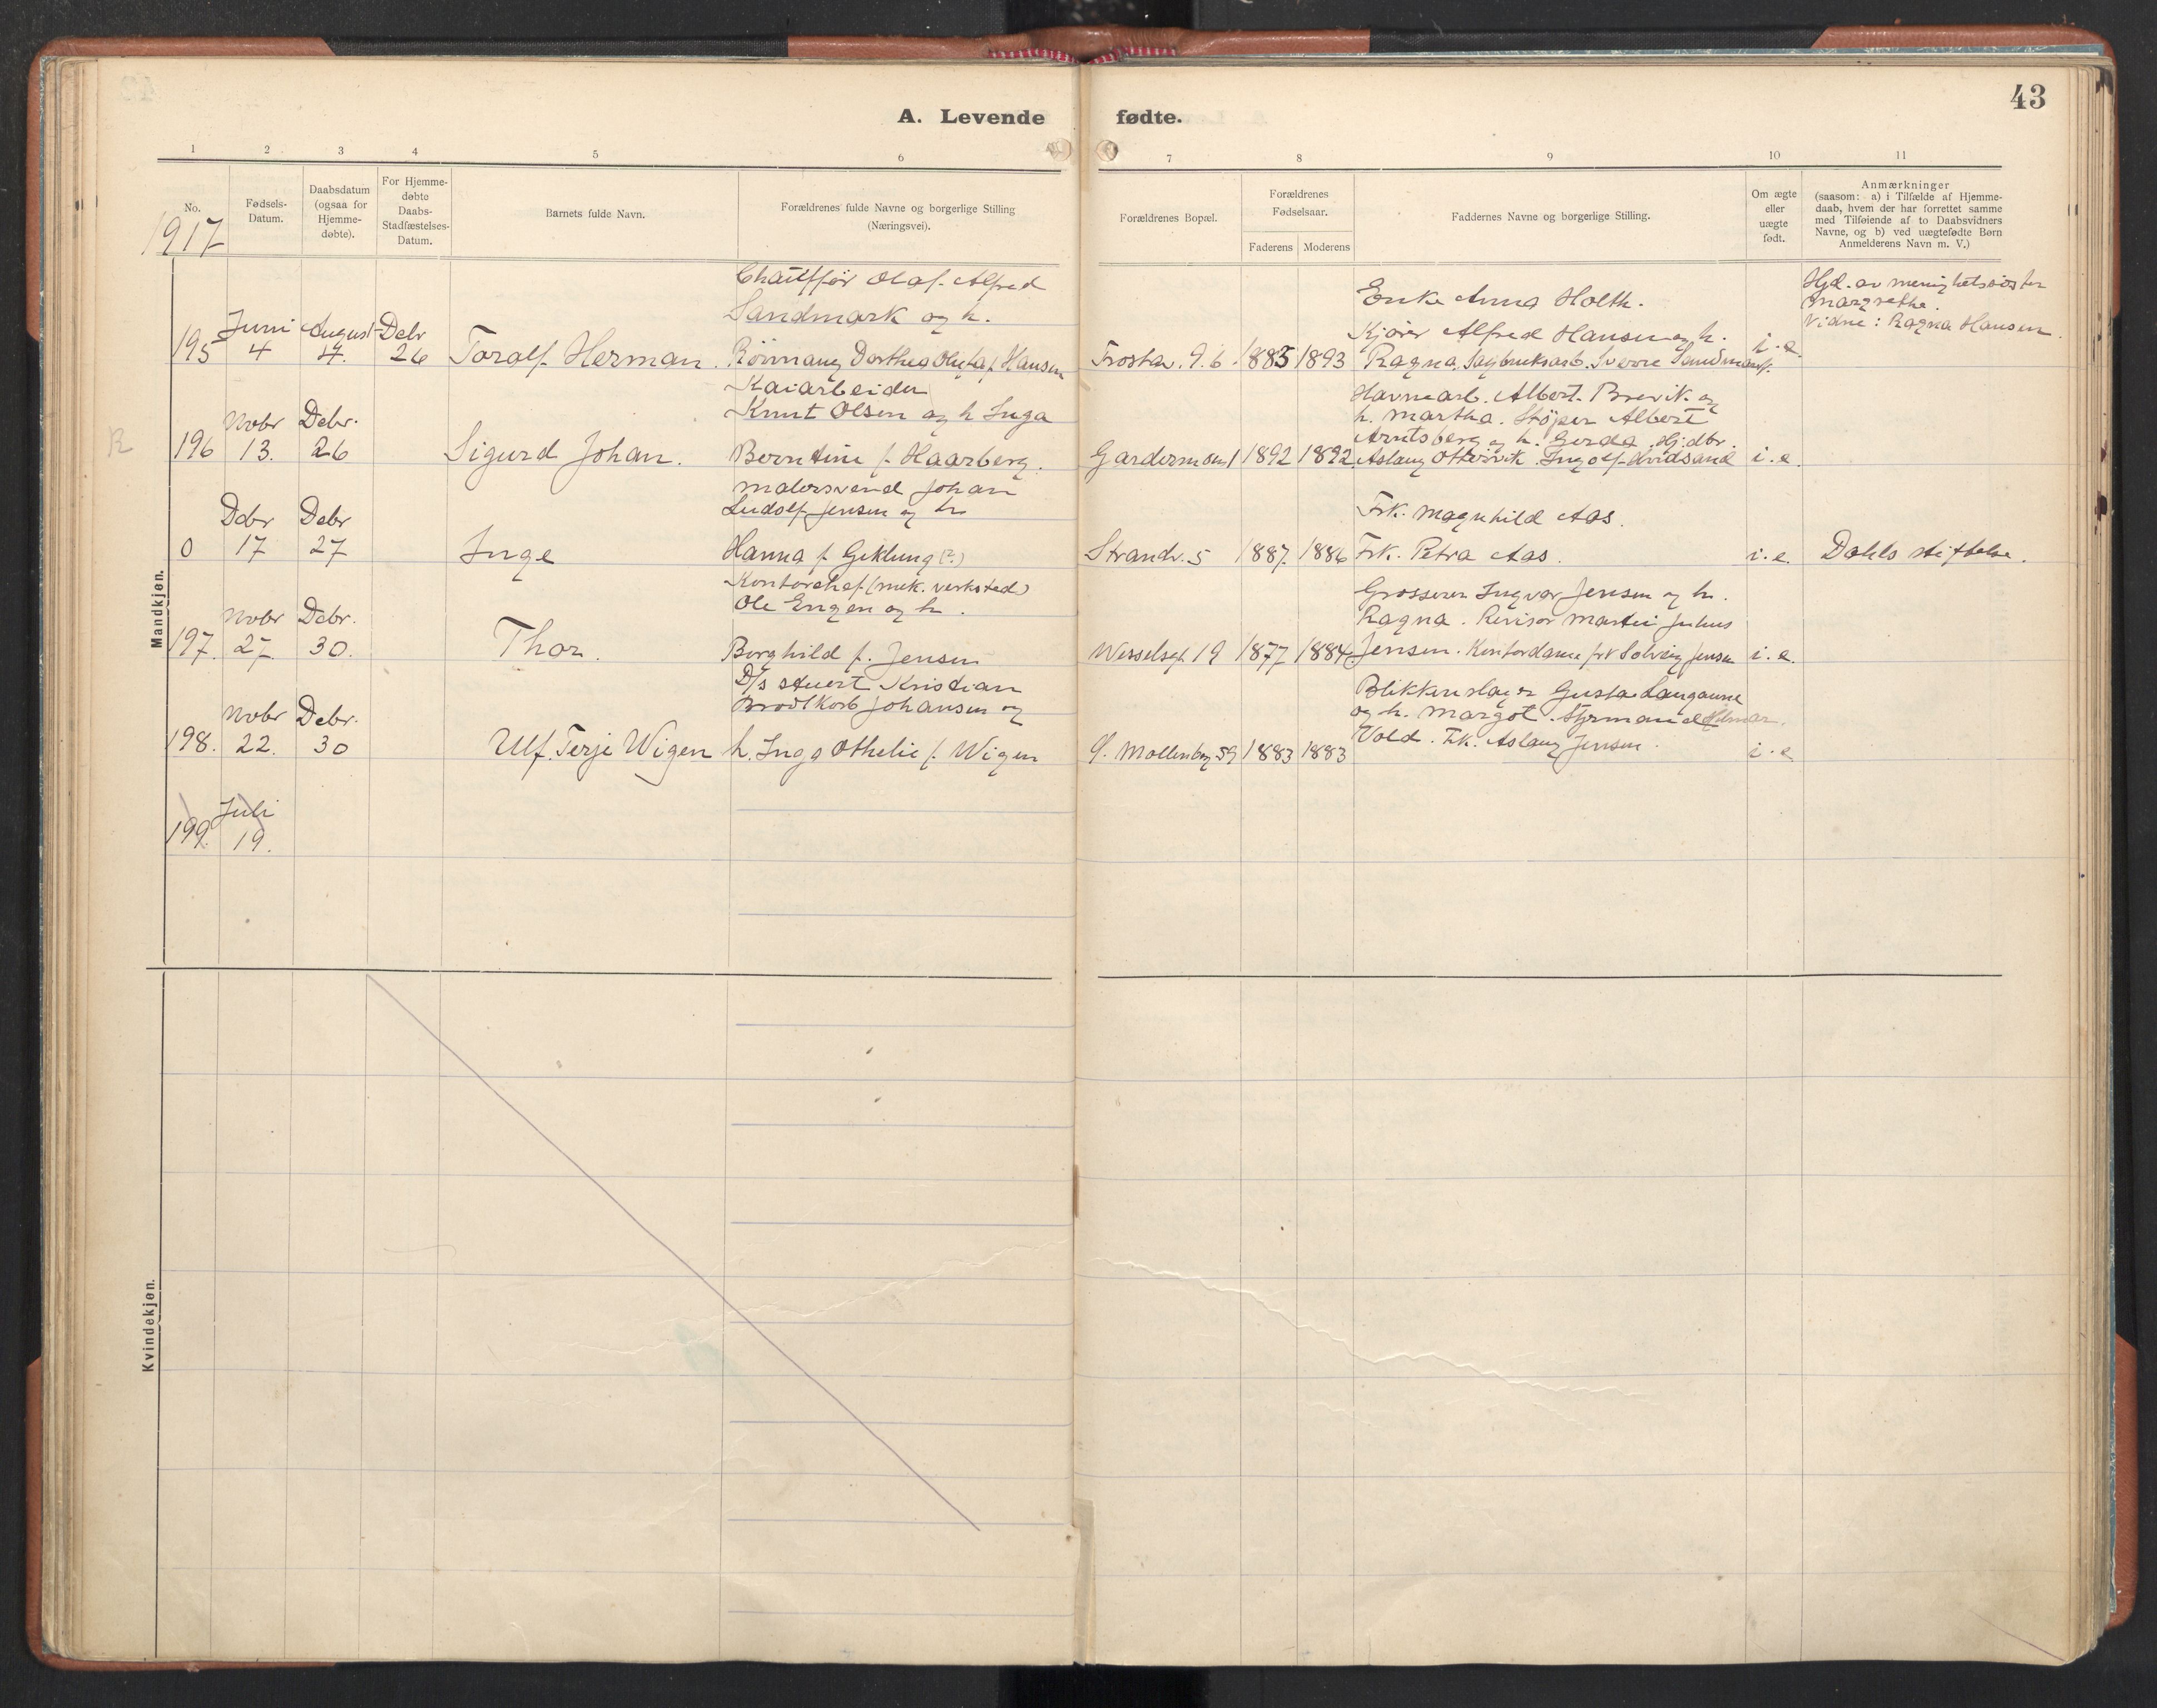 43
A. Levende fødte.
1 2 3 4 5 6 7 8 9 10 11
No.
Fødsels-
Datum.
Daabsdatum
(ogsaa for
Hjemme-
døbte).
For Hjemme-
døbte
Daabs-
Stadfæstelses-
Datum.
Barnets fulde Navn.
Forældrenes fulde Navne og borgerlige Stilling
(Næringsvei).
Forældrenes Bopæl.
Forældrenes
Fødselsaar.
Faderens Moderens
Faddernes Navne og borgerlige Stilling.
Om ægte
eller
uægte
født.
Anmærkninger
(saasom: a) i Tilfælde af Hjemme-
daab, hvem der har forrettet samme
med Tilføiende af to Daabsvidners
Navne, og b) ved uægtefødte Børn
Anmelderens Navn m. V.)
1917
Mandkjøn.
195
Juni
4
August
4.
Debr
26
Toralf Herman.
Chauffør Olaf Alfred
Sandmark og h.
Rønnaug Dorthea Oluta f. Hansen
Frostav. 9.b.
1883
1893
Enke Anna Holth.
Kjører Alfred Hansen og h.
Ragna, Sagbruksarb. Sverre Sandmark.
i.e.
Hjd. av menighetssøster
Margrethe.
Vidne: Ragna Hansen
R
196
Novbr
13.
Debr.
26
Sigurd Johan.
Kaiarbeider
Knut Olsen og h Inga
Berntine f. Haarberg.
Gardermoen 1
1892
1892
Havnearb. Albert Brevik og
h. Martha. Støper Albert
Arntsberg og h. Gerda. Hj.dbr.
Aslaug Ottervik. Ingolf Hvidsand
i.e.
0
Debr
17
Debr
27
Inge
Malersvend Johan
Ludolf Jensen og h
Hanna f. Geklung (?)
Strandv. 5
1887.
1886
Frk. Magnhild Aas.
Frk. Petra Aas.
i.e.
Dahls stiftelse.
197.
Novbr
27.
Debr.
30.
Thor.
Kontorchef (mek. verksted)
Ole Engen og h.
Borghild f. Jensen
Wesselsgt. 19
1877
1884
Grosserer Ingvar Jensen og h.
Ragna. Revisor Martin Julius
Jensen. Kontordame frk Solveig Jensen
i.e.
198.
Novbr
22.
Debr.
30
Ulf Terje Wigen
D/s stuert Kristian
Brodtkorb Johansen og
h. Inga Othelie f. Wigen
Ø. Mollenberg 59
1883
1883
Blikkenslager Gustav Langaune
og h. Margot. Styrmand Hilmar.
Vold. Frk. Aslaug Jensen.
i.e
199.
Juli
19.
Kvindekjøn.